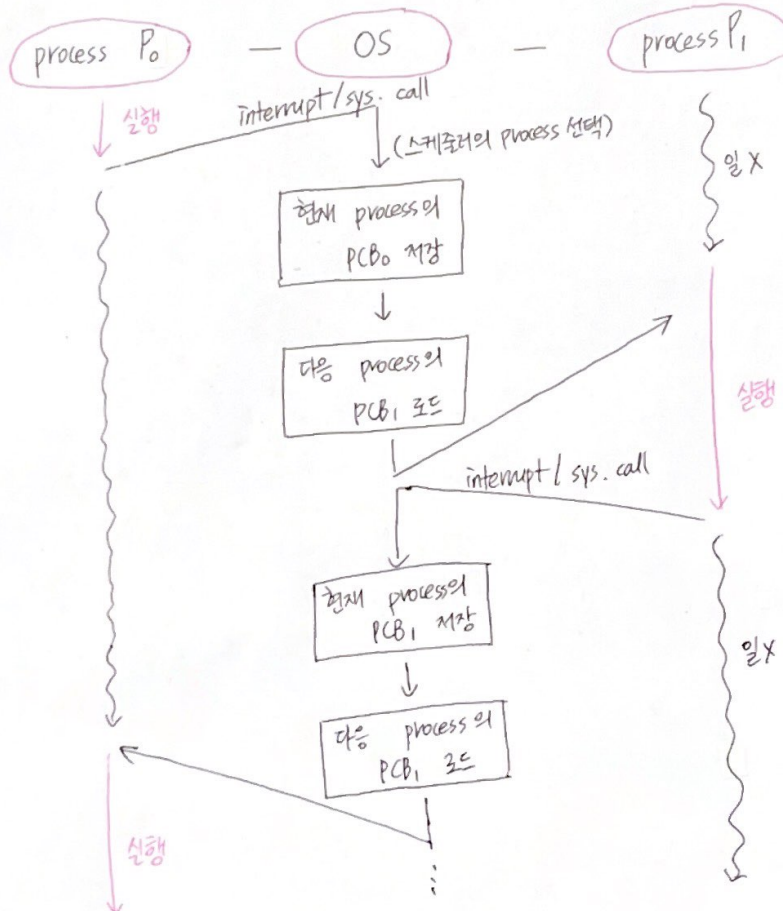 process P₀ — OS — process P₁
실행
interrupt/sys. call
(스케줄러의 process 선택)
일X
현재 process의
PCB₀ 저장
다음 process의
PCB₁ 로드
실행
interrupt/sys. call
현재 process의
PCB₁ 저장
일X
다음 process의
PCB₁ 로드
실행